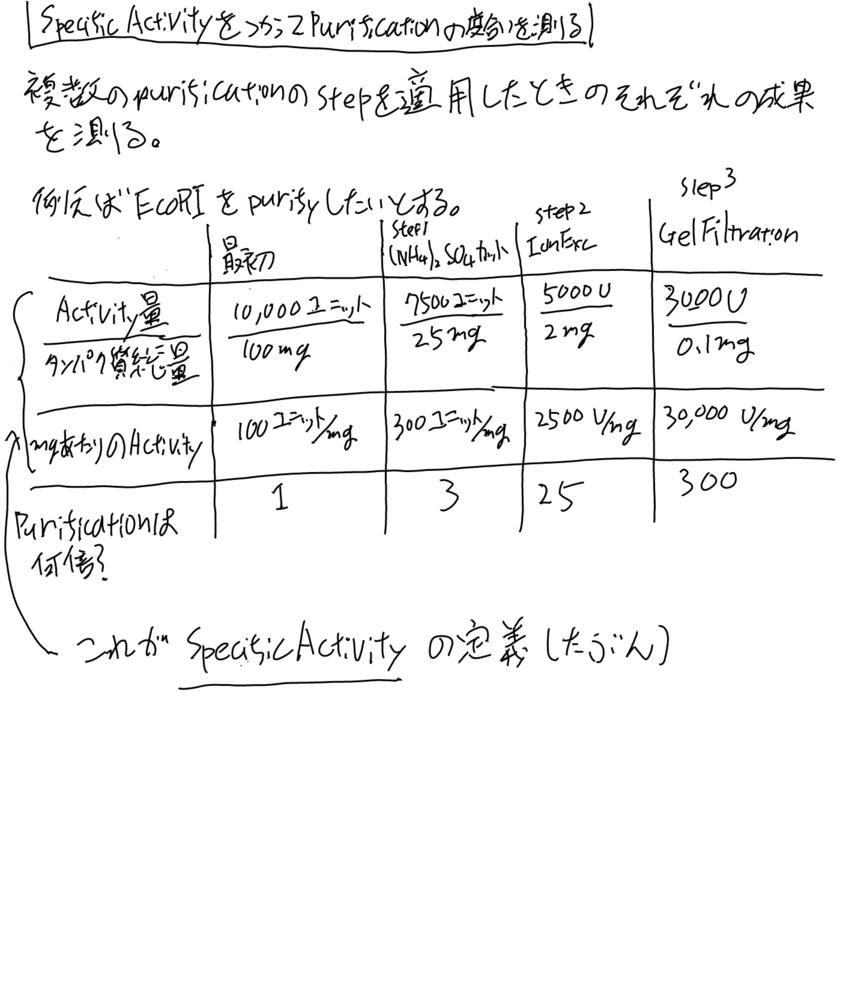 Specific Activityをつかってpurificationの度合いを測る
複数のpurificationのstepを適用したときのそれぞれの成果
を測る。
例えばEcoRIをpurifyしたいとする。
最初
step1
(NH4)2SO4カット
step2
IonExc
step3
Gel Filtration
Activity量
タンパク質総量
10,000ユニット
100mg
7500ユニット
25mg
5000U
2mg
3000U
0.1mg
mgあたりのActivity
100ユニット/mg
300ユニット/mg
2500 U/mg
30,000 U/mg
Purificationは
何倍?
1
3
25
300
これが Specific Activity の定義(たぶん)